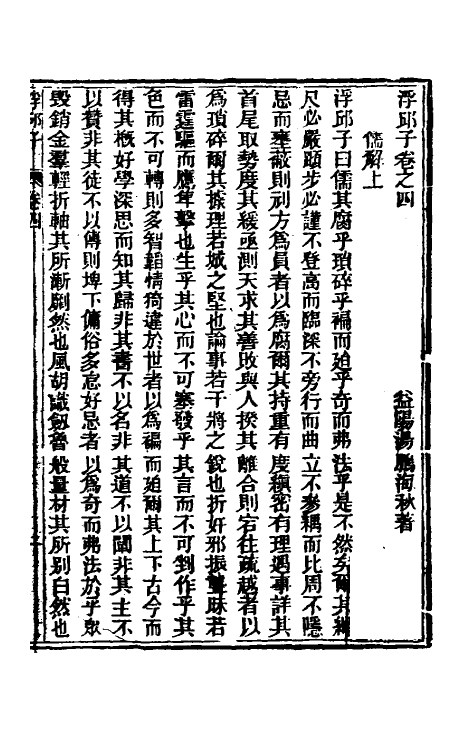 浮邱子卷之四
益陽湯鵬海秋著
儒解上
浮邱子曰儒其腐乎瑣碎乎褊而廹乎奇而弗法乎是不然矣爾其繩
尺必嚴蹞步必謹不登高而臨深不旁行而曲立不參耦而比周不隱
忌而壅蔽則刓方為員者以為腐爾其持重有度縝密有理遇事詳其
首尾取勢度其緩亟測天求其善敗與人揆其離合則宕往疏越者以
為瑣碎爾其據理若城之堅也論事若干將之銳也折奸邪振聾昧若
雷霆驅而鷹隼擊也生乎其心而不可塞發乎其言而不可剉作乎其
色而不可轉則多智韜情猗違於世者以為褊而廹爾其上下古今而
得其概好學深思而知其歸非其書不以名非其道不以闡非其主不
以贊非其徒不以傳則埤下傭俗多忌好忌者以為奇而弗法於乎眾
毀銷金羣輕折軸其所漸劘然也風胡識劒魯般量材其所别白然也
浮邱子
卷四